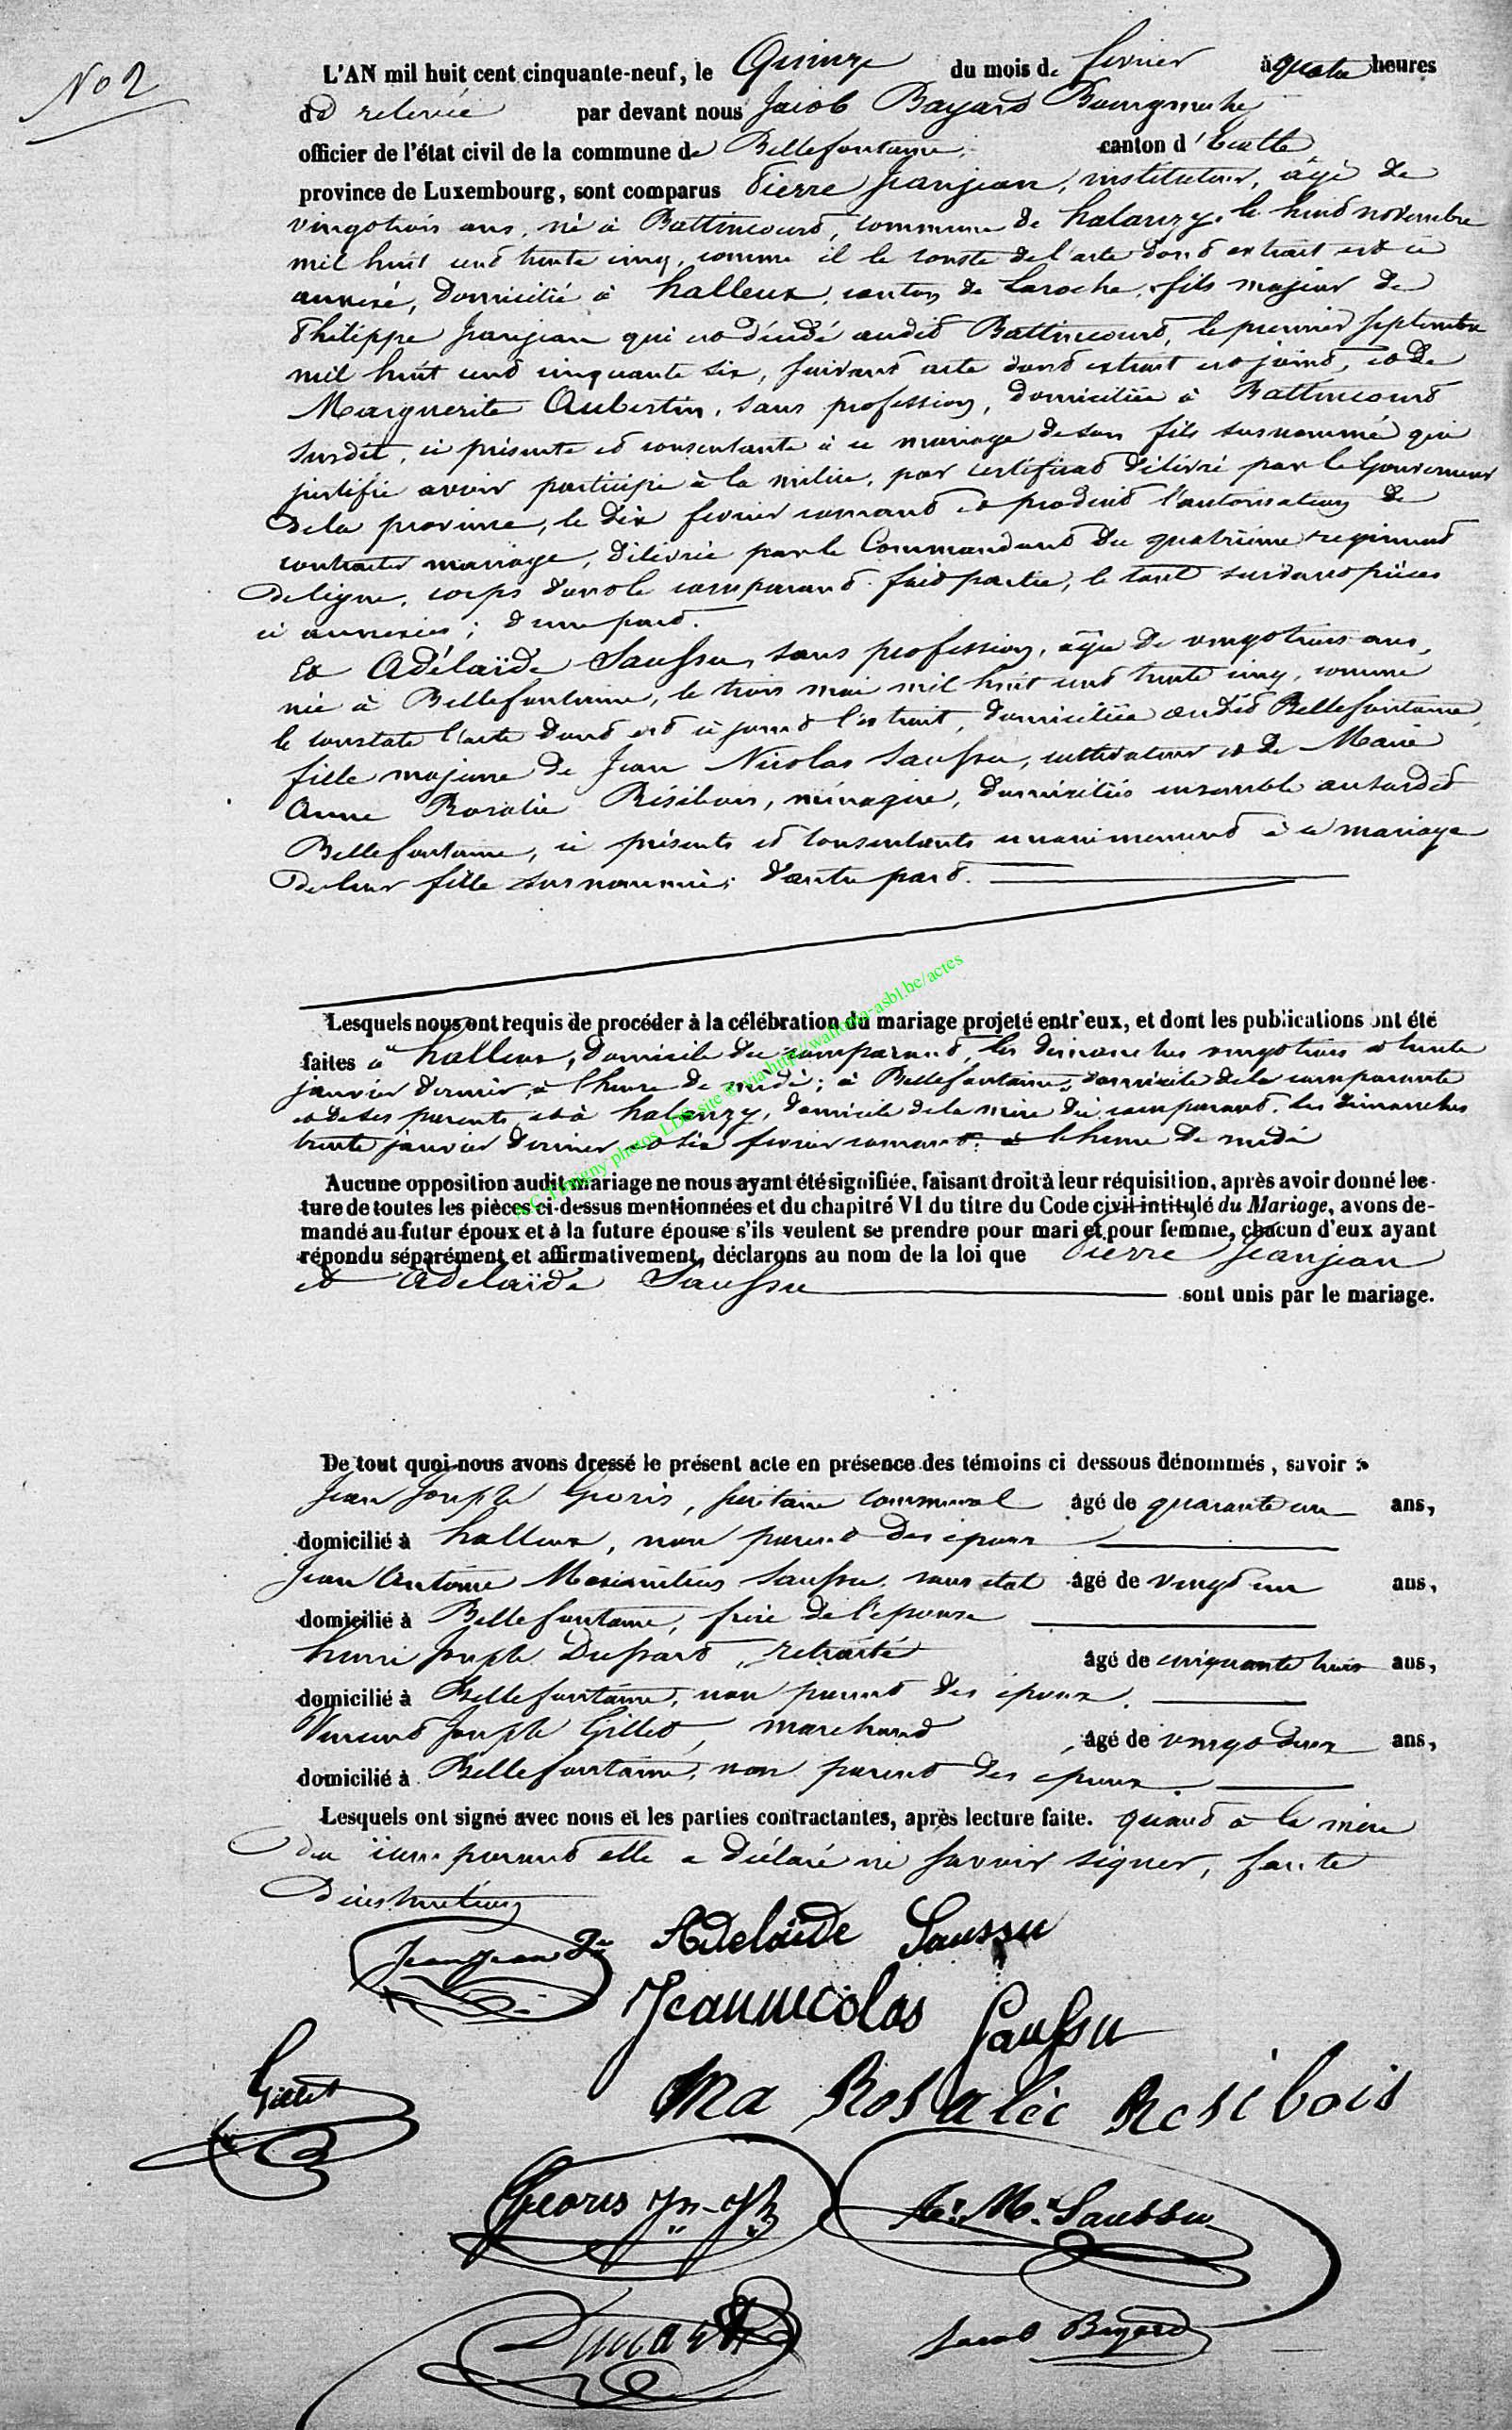 No 2
L'AN mil huit cent cinquante-neuf, le Quinze du mois de fevrier à quatre heures
de relevée par devant nous Jacob Bayard Bourgmestre
officier de l'état civil de la commune de Bellefontaine, canton d'Etalle
province de Luxembourg, sont comparus Pierre Jeanjean, instituteur, âgé de
vingt trois ans, né à Battincourt, commune de halanzy, le huit novembre
mil huit cent trente cinq, comme il le conste de l'acte dont extrait est ci
annexé, domicilié à halleux, canton de Laroche, fils majeur de
Philippe Jeanjean qui est décédé audit Battincourt, le premier septembre
mil huit cent cinquante six, suivant acte dont extrait est joint, et de
Marguerite Aubertin, sans profession, domiciliée à Battincourt
susdit, ci présente et consentante à ce mariage de son fils susnommé qui
justifie avoir participé à la milice, par certificat délivré par le Gouverneur
de la province, le dix fevrier courant et produit l'autorisation de
contracter mariage, délivrée par le Commandant du quatrième regiment
de ligne, corps dont le comparant fait partie, le tout suivant pièces
ci annexées; d'une part.
Et Adélaïde Saussu, sans profession, agée de vingt trois ans,
née à Bellefontaine, le trois mai mil huit cent trente cinq, comme
le constate l'acte dont est ci joint l'extrait, domiciliée audit Bellefontaine,
fille majeure de Jean Nicolas Saussu, cultivateur et de Marie
Anne Rosalie Résibois, ménagère, domiciliés ensemble au susdit
Bellefontaine, ci présents et consentants unanimement à ce mariage
de leur fille susnommée; d'autre part.
Lesquels nous ont requis de procéder à la célébration du mariage projeté entr'eux, et dont les publications ont été
faites à halleux, domicile du comparant, les dimanches vingt trois et trente
janvier dernier, à l'heure de midi; à Bellefontaine, domicile de la comparante
et de ses parents et à halanzy, domicile de la mère du comparant, les dimanches
trente janvier dernier et six fevrier courant, à l'heure de midi
A.C. Thugny photos LDS site © via http://wallonia-asbl.be/actes
Aucune opposition audit mariage ne nous ayant été signifiée, faisant droit à leur réquisition, après avoir donné lec-
ture de toutes les pièces ci-dessus mentionnées et du chapitré VI du titre du Code civil intitulé du Mariage, avons de-
mandé au futur époux et à la future épouse s'ils veulent se prendre pour mari et pour femme, chacun d'eux ayant
répondu séparément et affirmativement, déclarons au nom de la loi que Pierre Jeanjean
et Adelaïde Saussu sont unis par le mariage.
De tout quoi nous avons dressé le présent acte en présence des témoins ci dessous dénommés, savoir :
Jean Joseph Georis, secrétaire communal âgé de quarante un ans,
domicilié à halleux, non parent des epoux
Jean Antoine Maximilien Saussu, sans état âgé de vingt un ans,
domicilié à Bellefontaine, frère de l'epouse
henri Joseph Dussart, retraité âgé de cinquante trois ans,
domicilié à Bellefontaine, non parent des époux.
Vincent Joseph Gillet, marchand âgé de vingt deux ans,
domicilié à Bellefontaine, non parent des epoux
Lesquels ont signé avec nous et les parties contractantes, après lecture faite. quant à la mère
du comparant elle a déclaré ne savoir signer, faute
d'instruction
Jeanjean Adelaïde Saussu
Jeannicolas Saussu
Gillet
Ma Rosalie Resibois
Georis Jn-Jh A. M. Saussu
Jacob Bayard